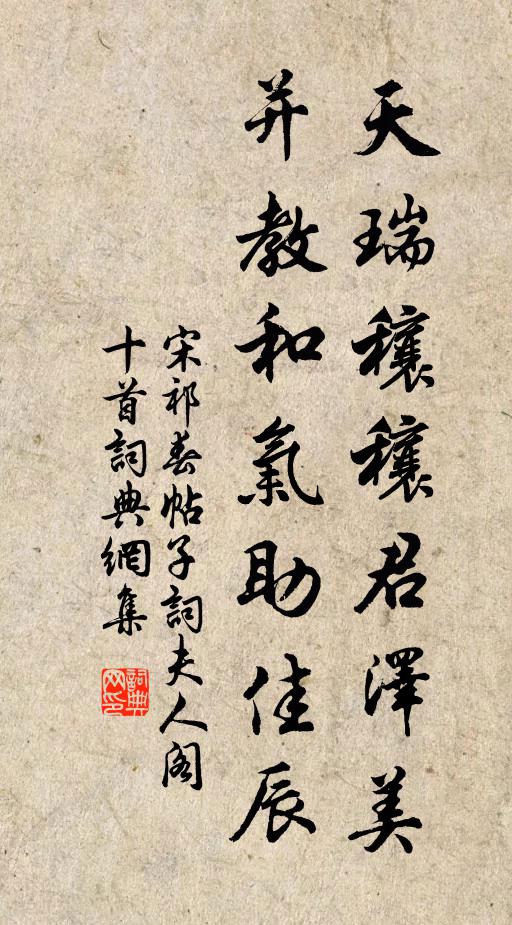 天瑞穰穰君澤美
并教和氣助佳辰
宋祁春帖子詞夫人阁
十首詞典網集
詞典网印